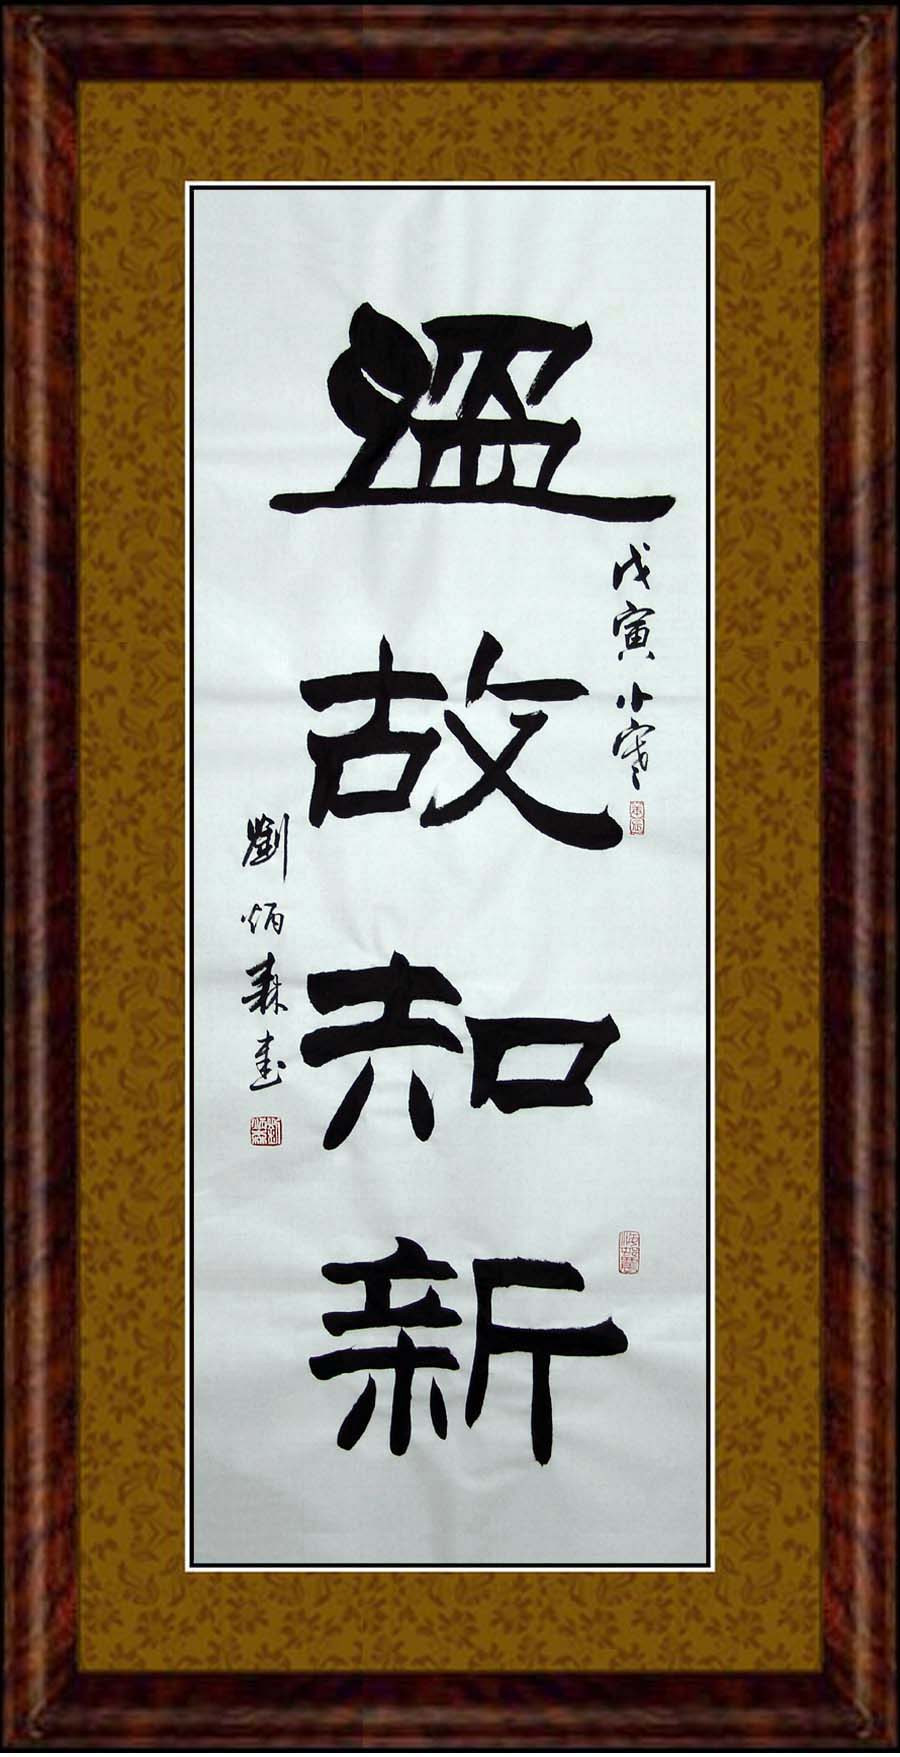 溫故知新
戊寅小寒
劉炳森書